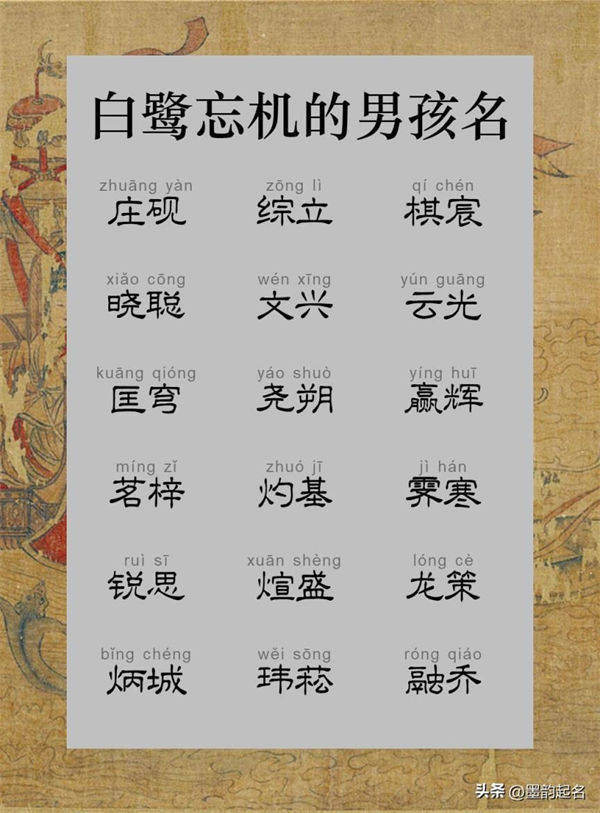 白鹭忘机的男孩名
zhuāng yàn zōng lì qí chén
庄砚 综立 棋宸
xiǎo cōng wén xīng yún guāng
晓聪 文兴 云光
kuāng qióng yáo shuò yíng huī
匡穹 尧朔 赢辉
míng zǐ zhuó jī jì hán
茗梓 灼基 霁寒
ruì sī xuān shèng lóng cè
锐思 煊盛 龙策
bǐng chéng wěi sōng róng qiáo
炳城 玮菘 融乔
头条 @墨韵起名